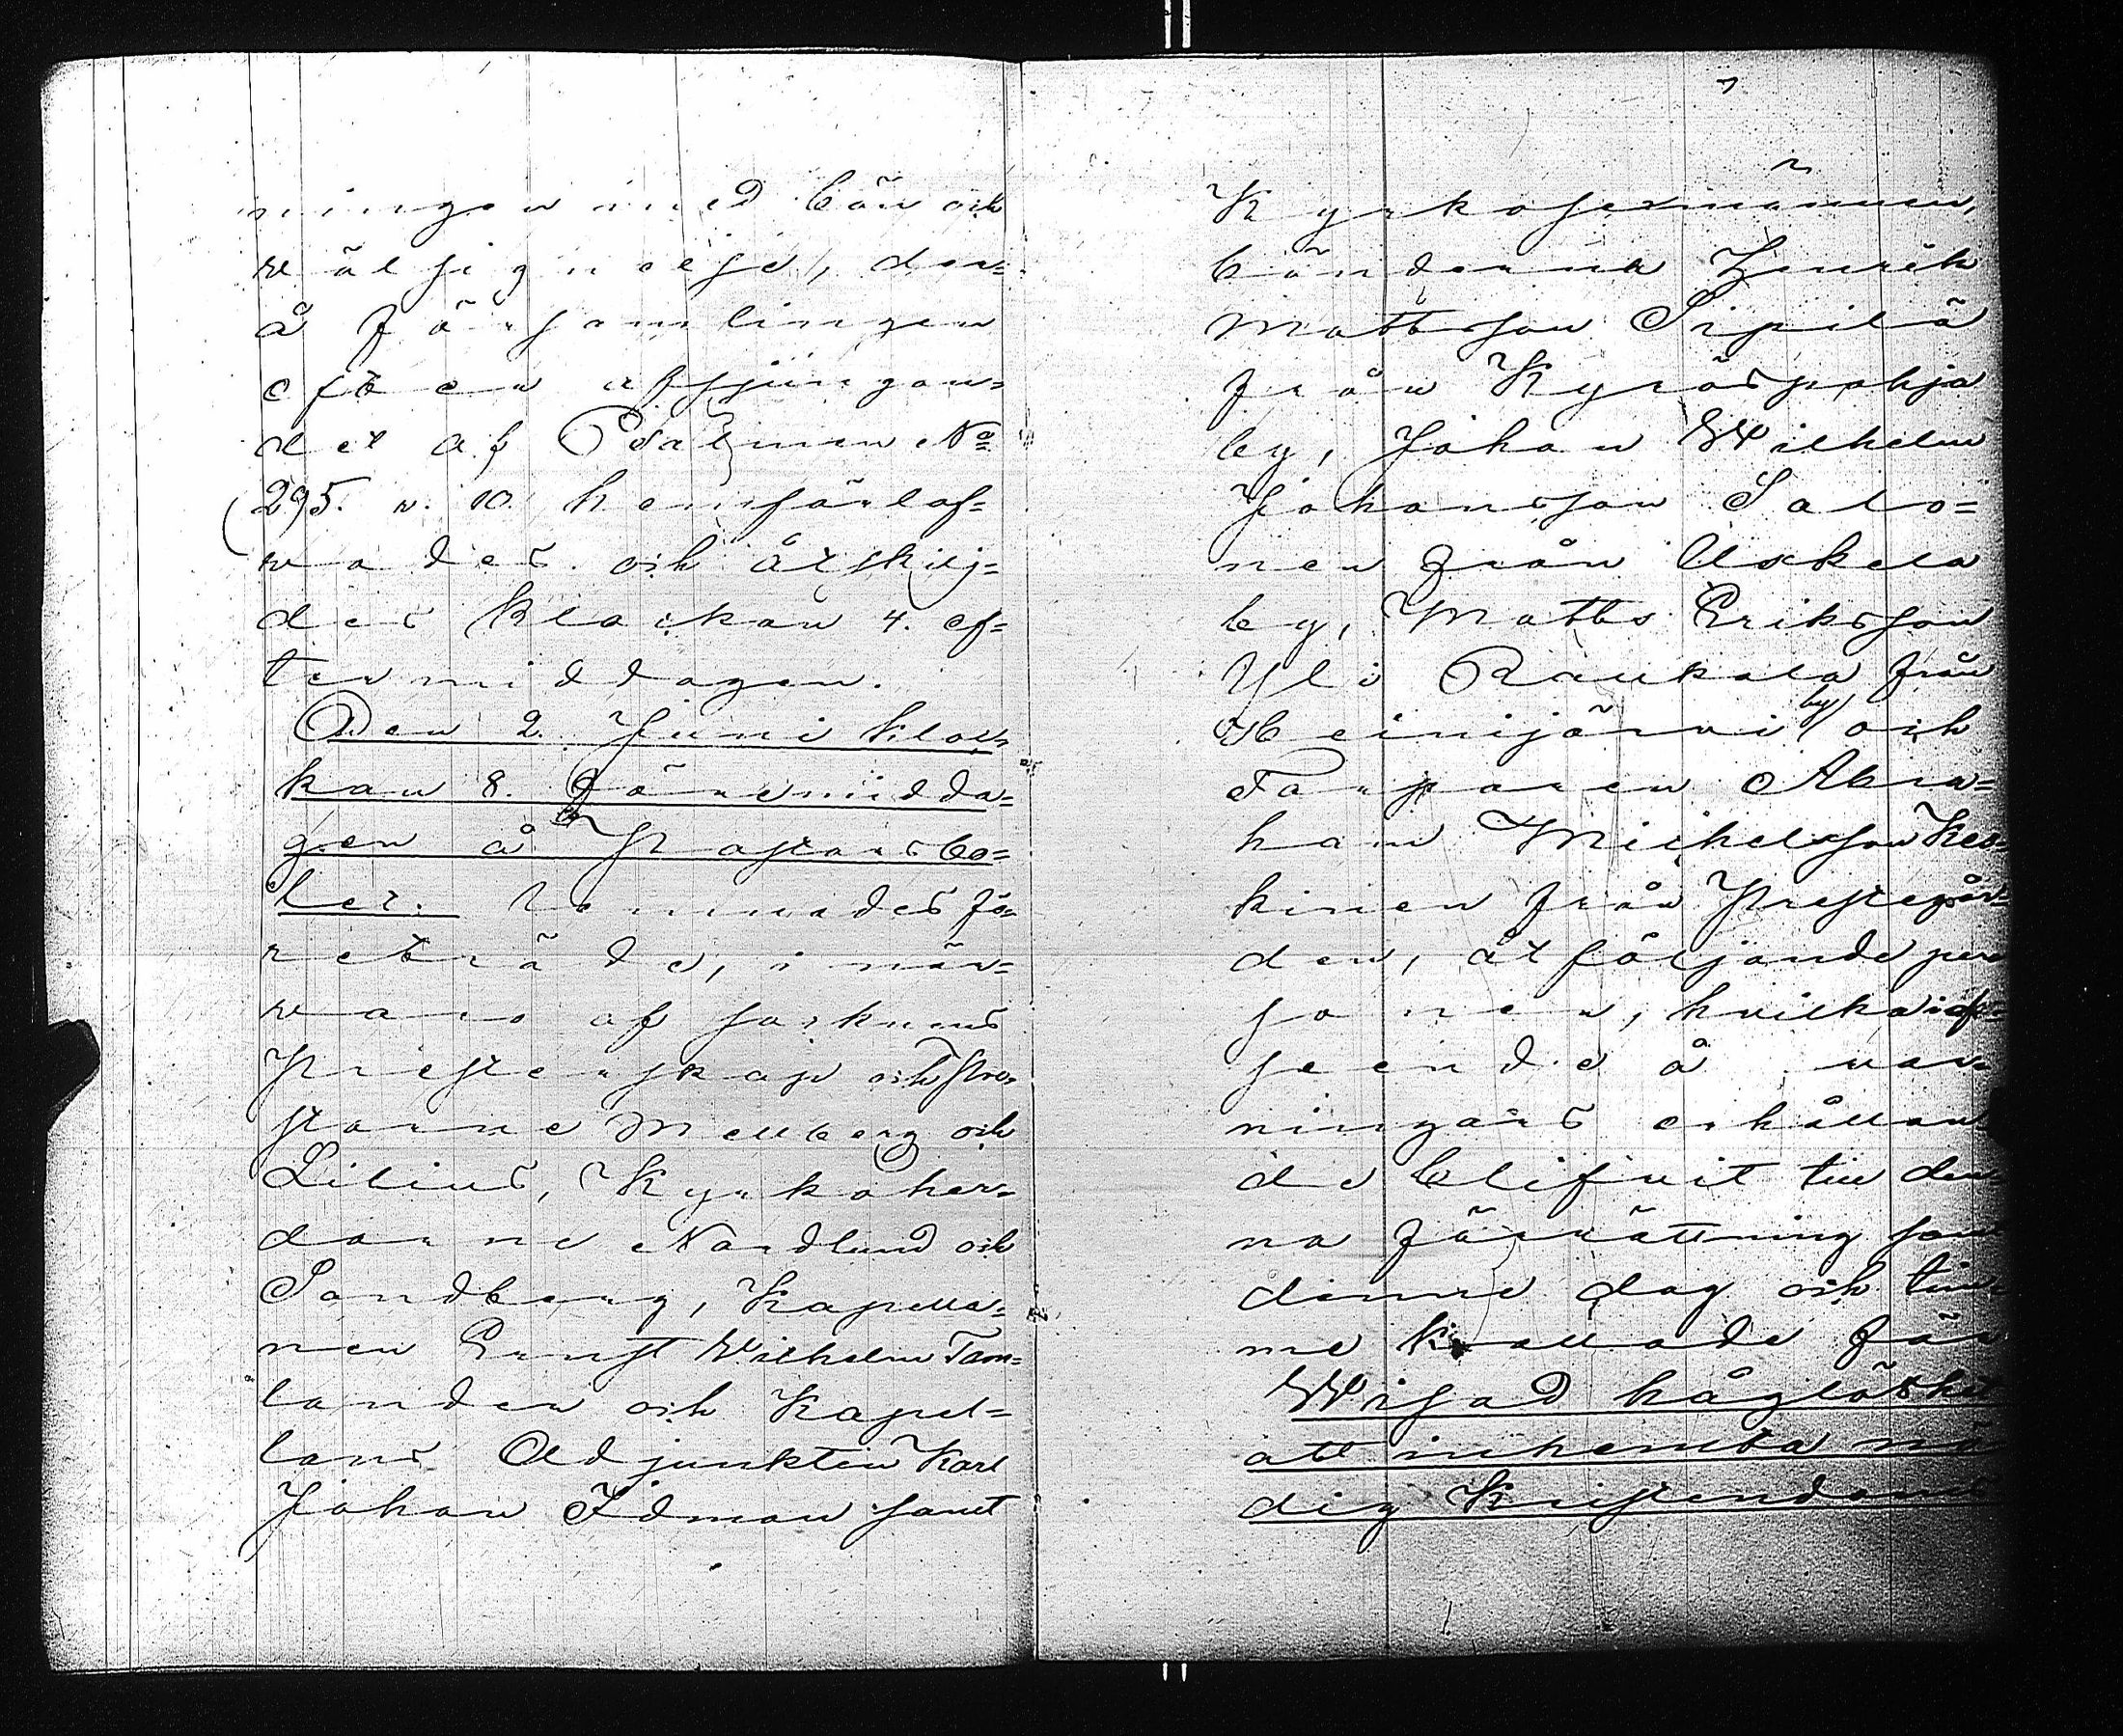 ningen med bön och
välsignelse, der-
å församlingen
efter afsjungan-
det af Psalmen No
295. v. 10. hemförlof-
vades och åtskilj-
des klockan 4. ef-
termiddagen.
Den 2. Juni kloc-
kan 8. förmidda-
gen å Pastorsbo-
let. lemnades fö-
reträde, i när-
varo af socknens
Presterskap och Pro-
starne Mellberg och
Lilius, Kyrkoher-
darne Nordlund och
Sandberg, Kapella-
nen Ernst Wilhelm Tam-
lander och Kapel-
lans Adjunkten Karl
Johan Idman samt
Kyrkosexmännen,
bönderna Henrik
Mattsson Sipilä
från Kyröspohja
by, Johan Wilhelm
Johansson Salo-
nen från Uskela
by, Matts Eriksson
Yli Raukola från
Heinijärvi by och
Torparen Abra-
ham Michelsson Kes-
kinen från Prestegår-
den, åt följande per
soner, hvilka i af-
seende å var-
nings erhållan-
de blifvit till den-
na förrättning som
denne dag och tim-
me kallade för
Wisad håglöshet
att inhemta nö
dig Kristendoms